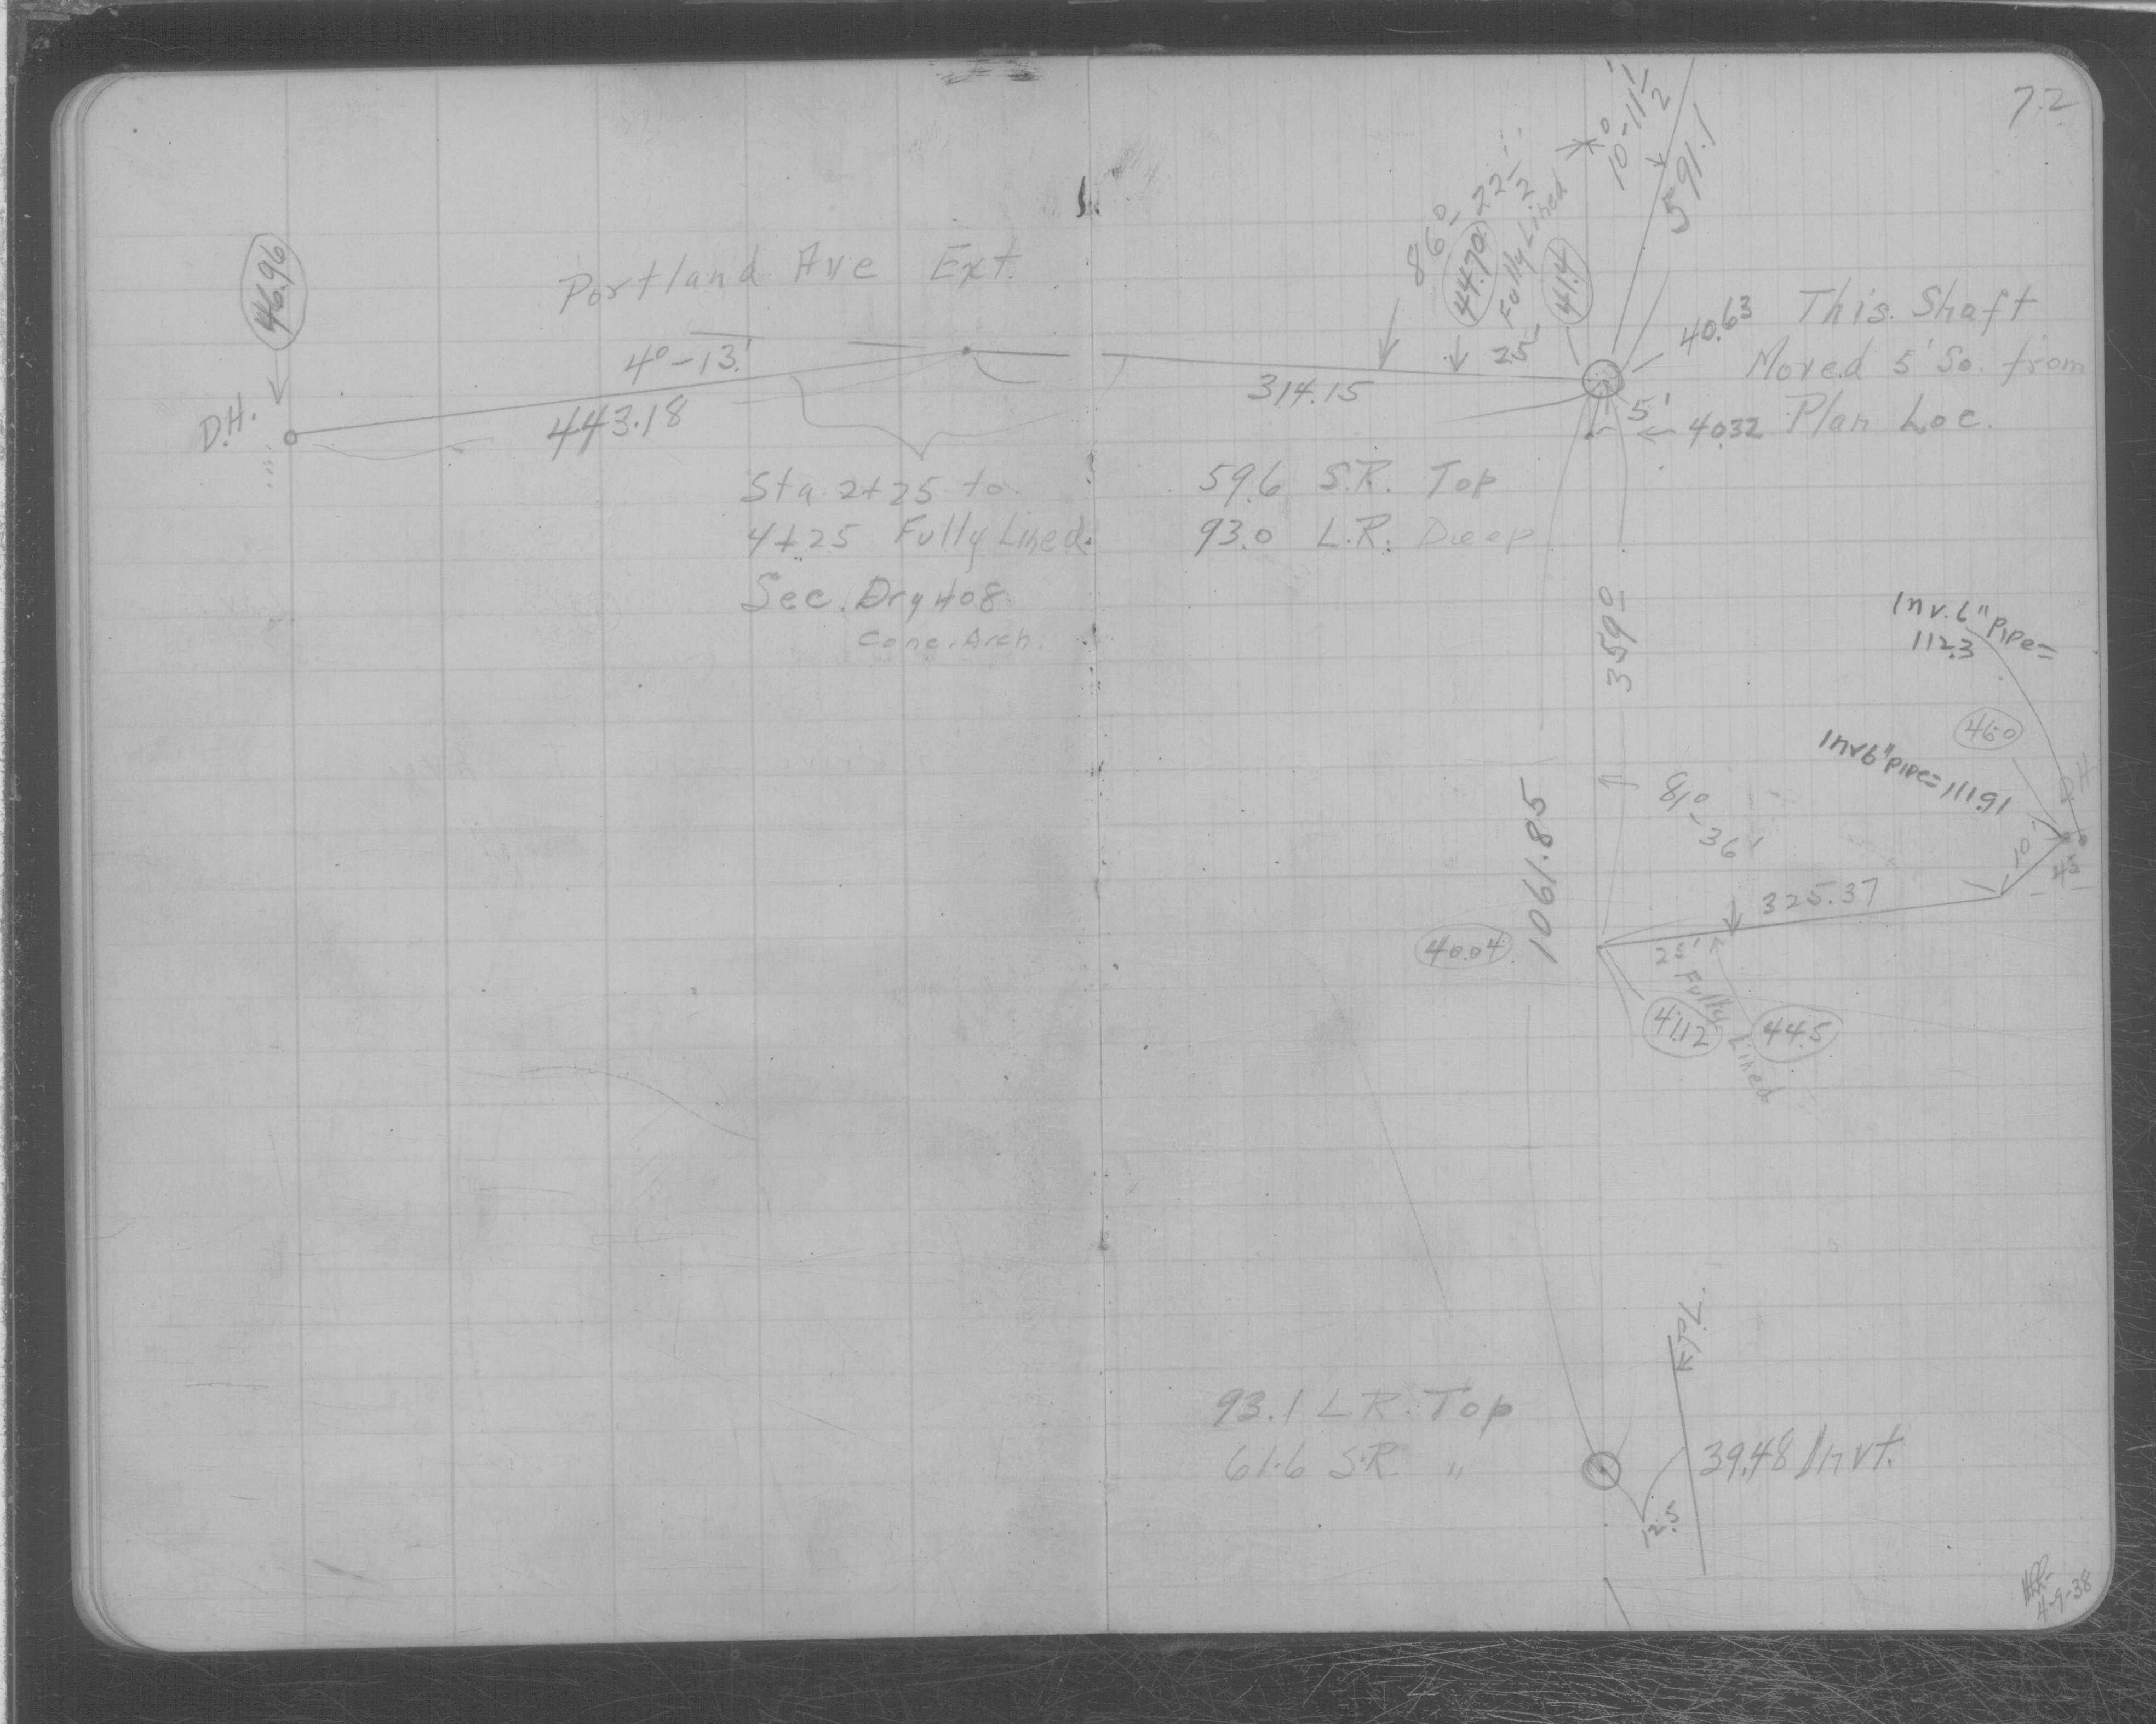 72
46.96
Portland Ave Ext.
4°-13'
443.18
D.H.
Sta 2+25 to
4+25 Fully Lined.
Sec. Dry 408
Conc. Arch.
86°-22 1/2'
44.70
Fully Lined
25
41.4
10°-11 1/2'
591.1
314.15
40.63
This Shaft
Moved 5' So. from
Plan Loc.
5'
40.32
59.6 S.R. Top
93.0 L.R. Deep
359°
1061.85
Inv. 6" pipe=
112.3
46.0
Inv 6" pipe= 111.91
D.H.
10'
45
81°
36'
325.37
40.04
25'
Fully
Lined
41.12
44.5
93.1 L.R. Top
61.6 S.R. "
PL.
39.48 Invt.
2.5
4-9-38